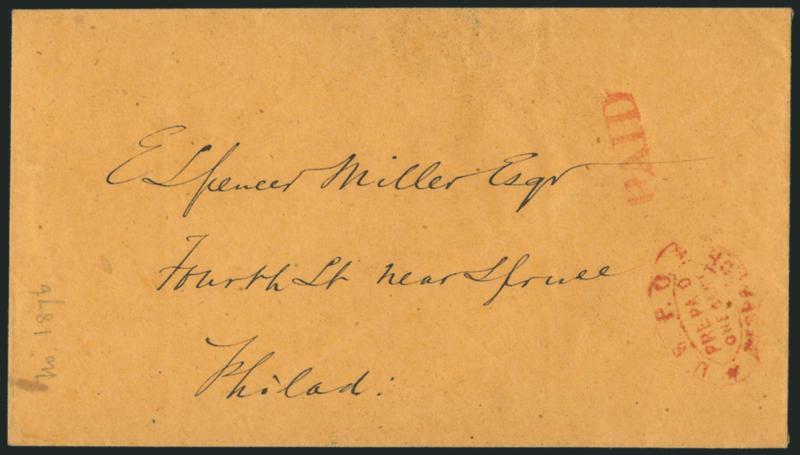 E Spencer Miller Esqr
Fourth St near Spruce
Philad:
PAID
U. S. P. O.
PREPAID
ONE CENT
DESPATCH
No 1876